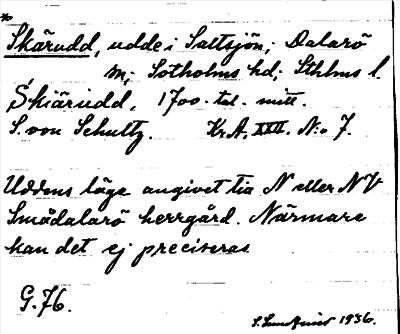 *
Skärudd, udde i Saltsjön; Dalarö
sn; Sotholms hd; Sthlms l.
Skiärudd. 1700-tal. mitt.
S. von Schultz. Kr.A. XXII. N:o 7.
Uddens läge angivet tia N eller NV
Smådalarö herrgård. Närmare
kan det ej preciseras
G. 76.
1936.